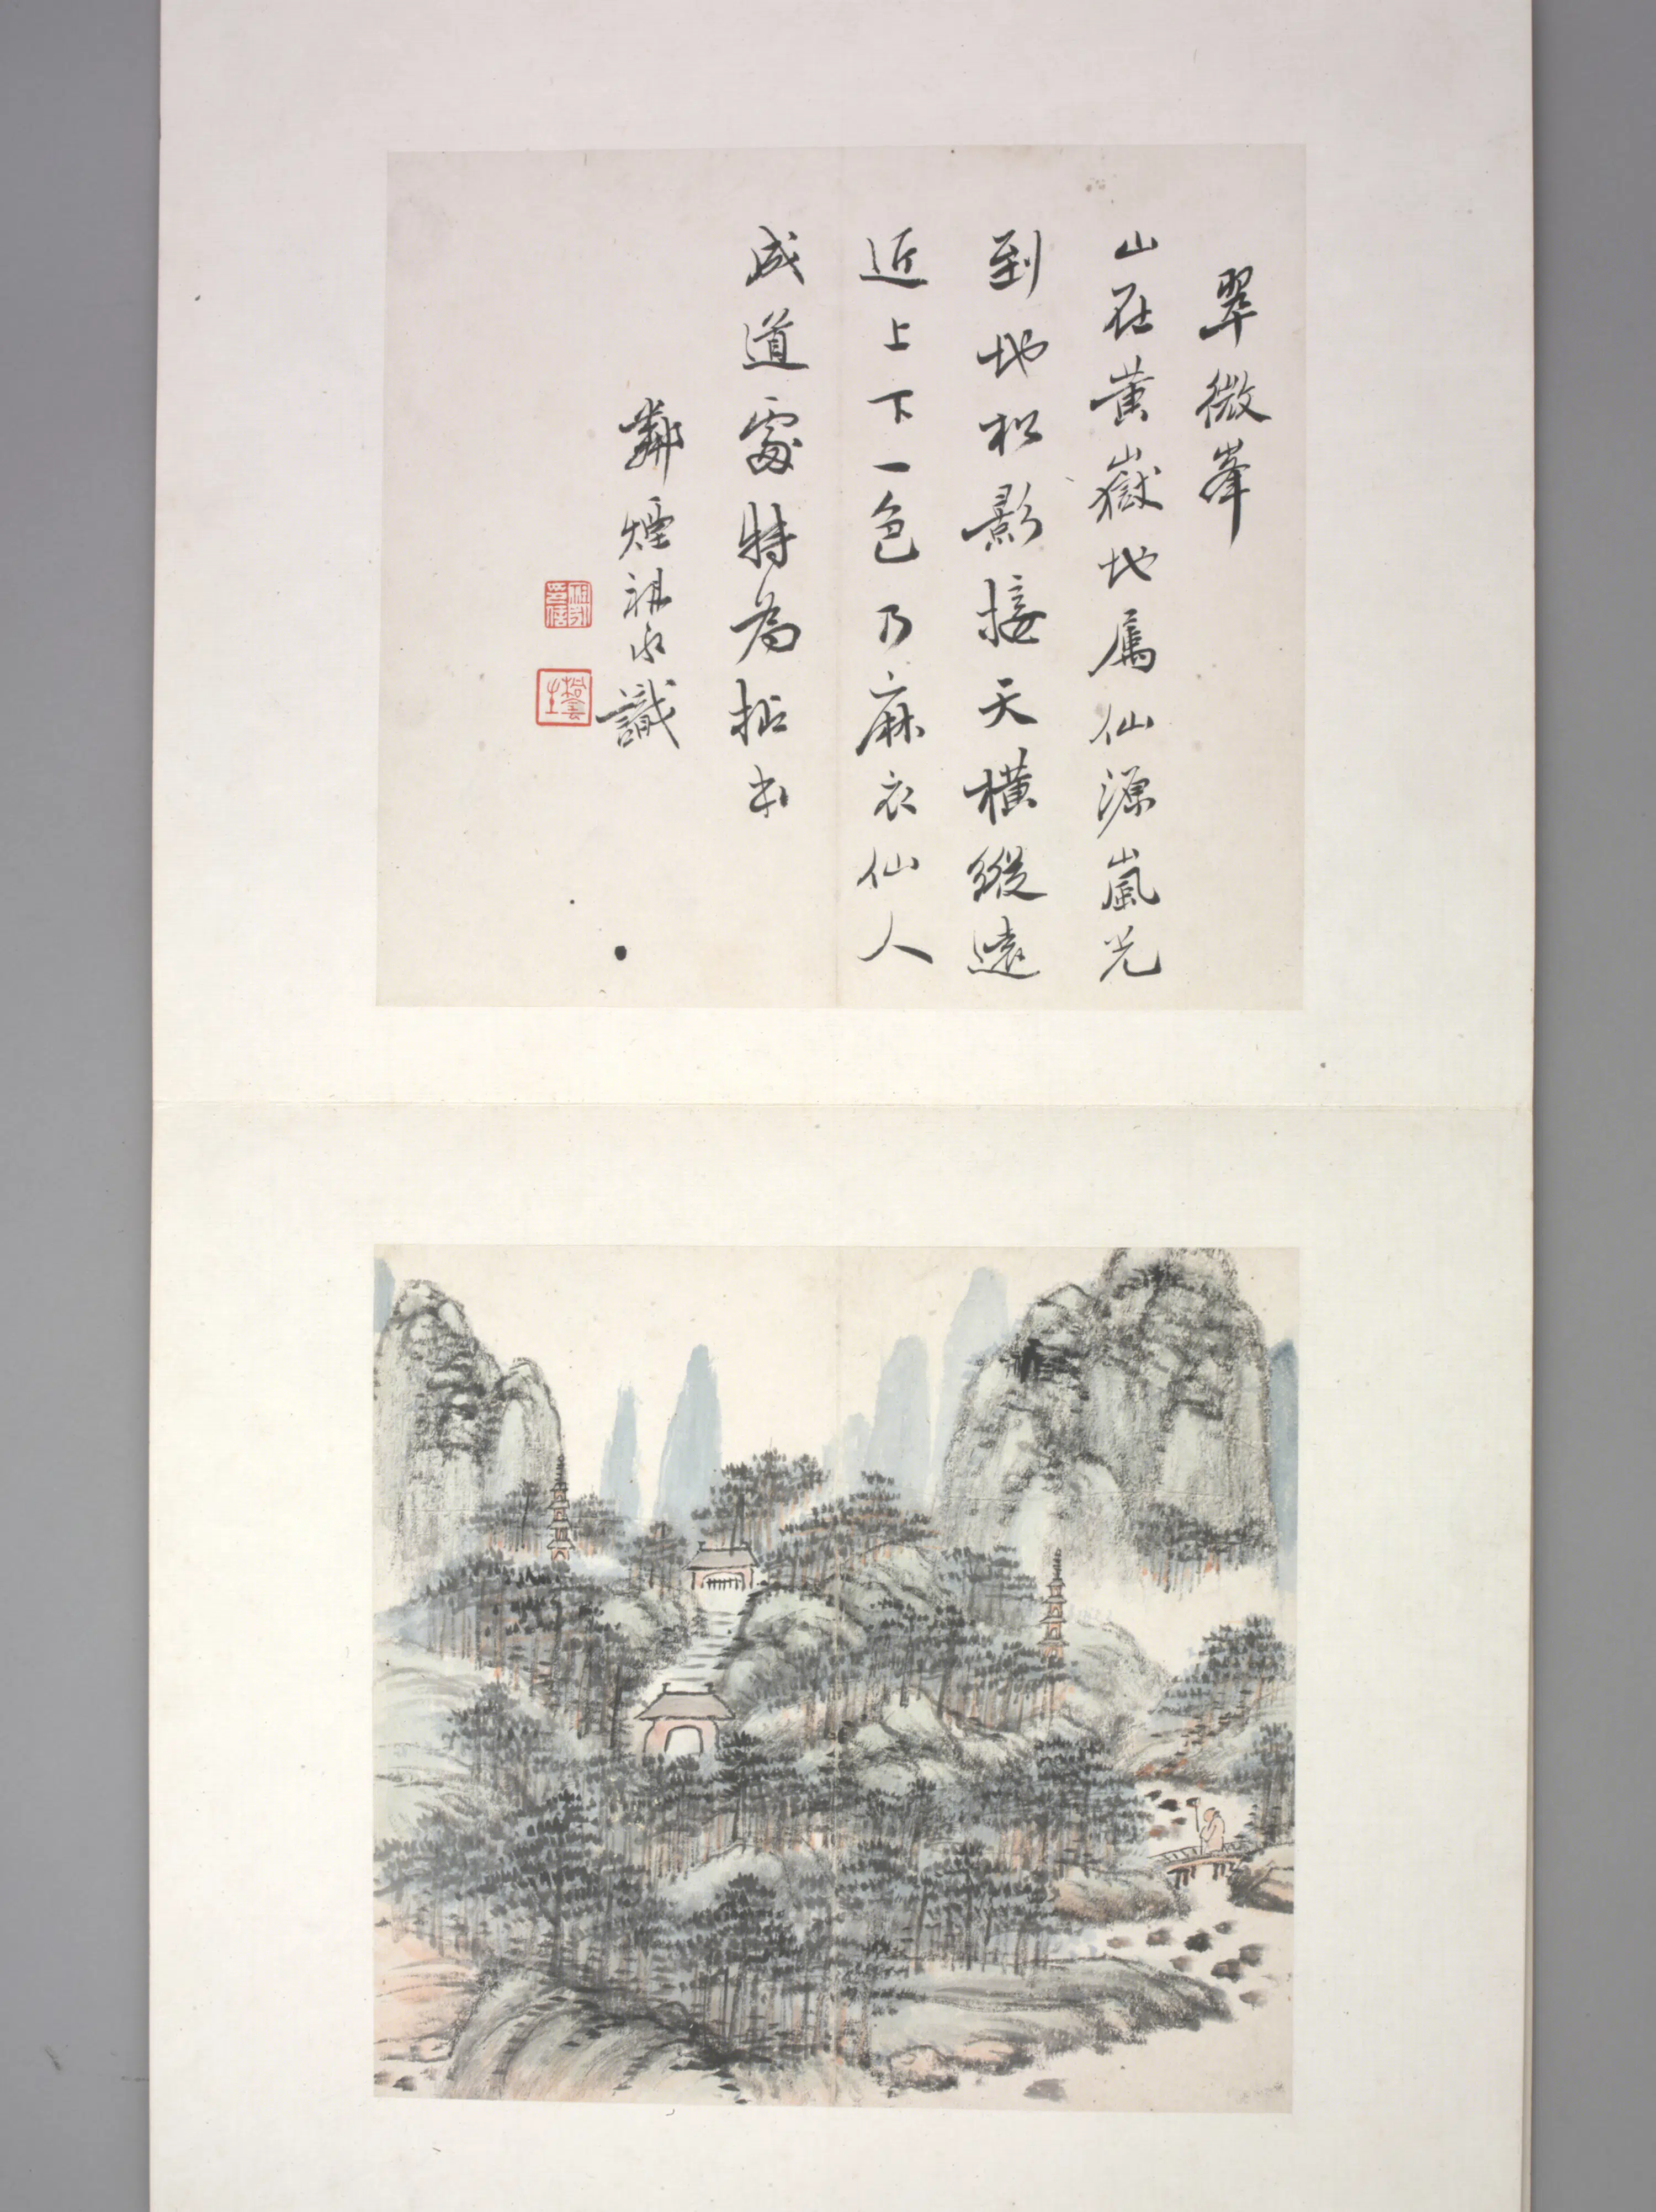 翠微峯
山在黄嶽地属仙源嵐光
到地松影接天橫縱遠
近上下一色乃麻衣仙人
成道處特為拈出
鄰煙祖永識